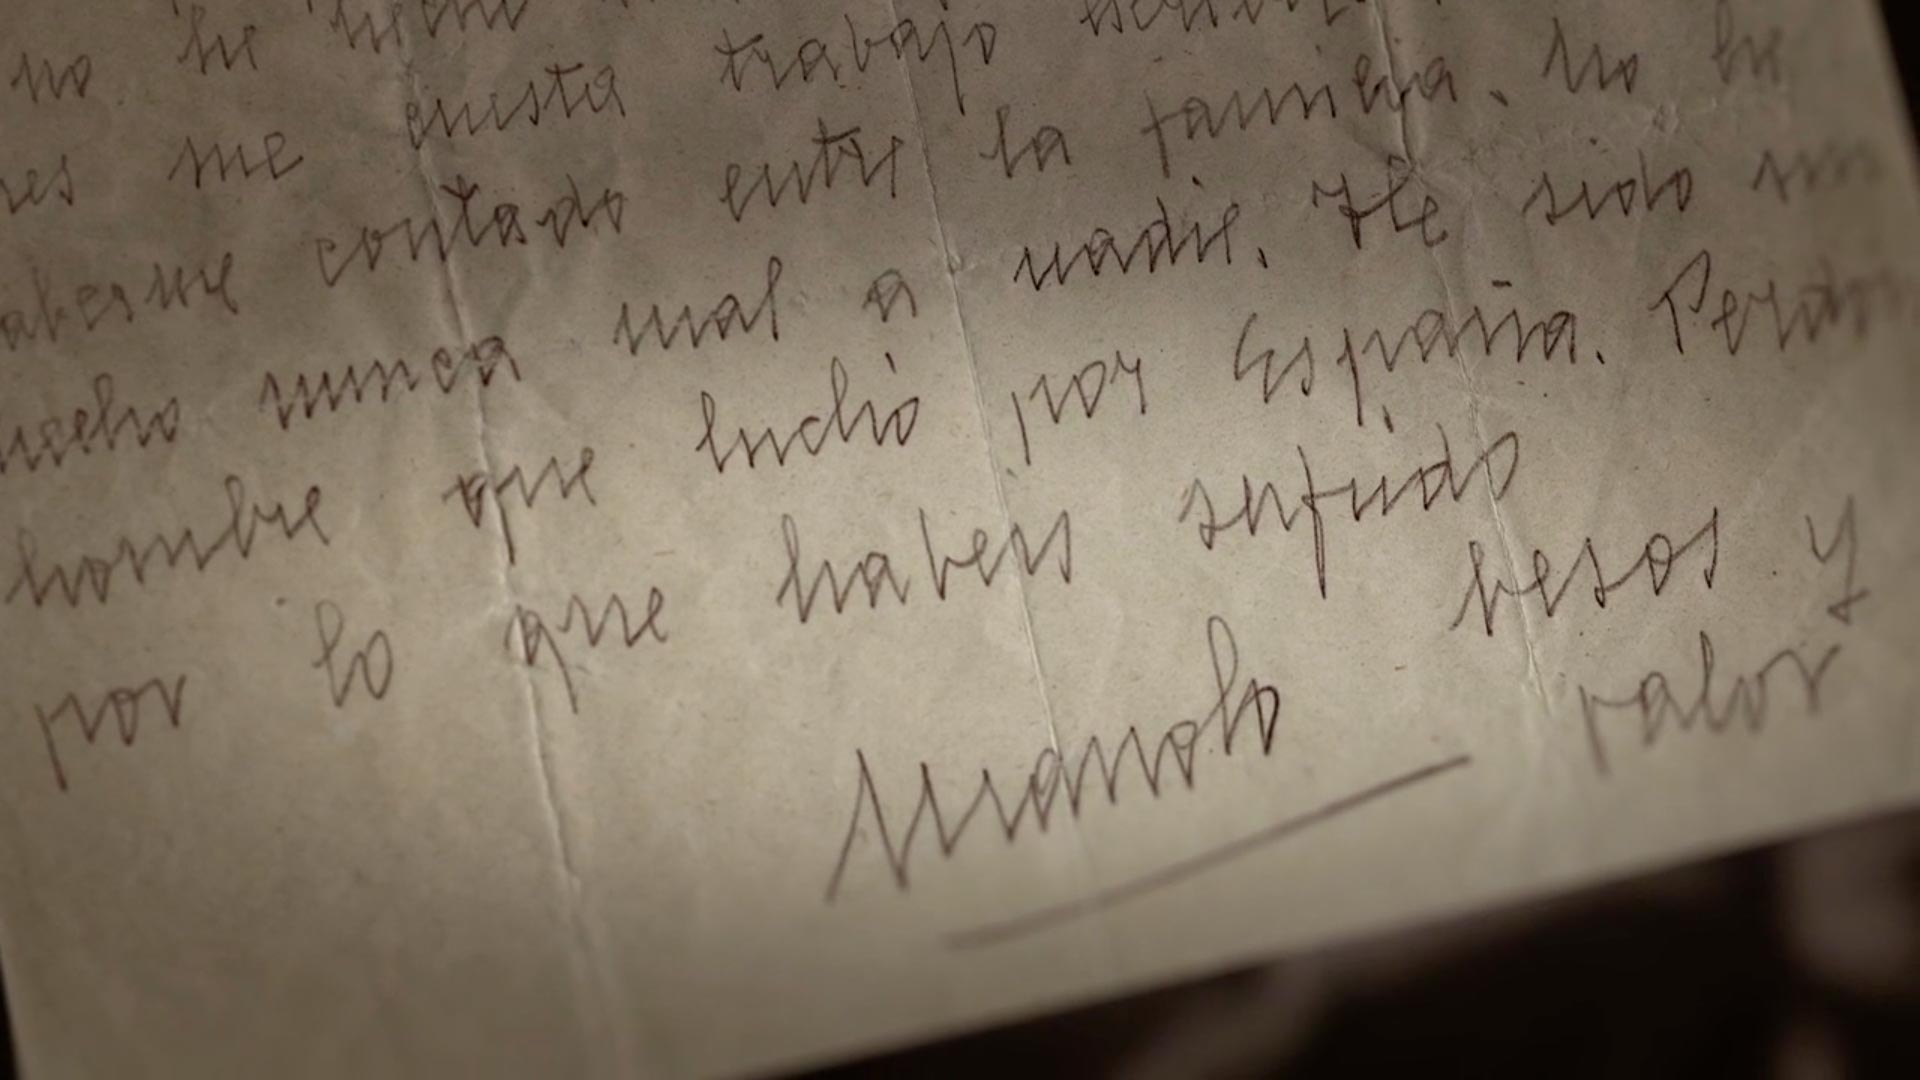 no he hecho
me cuesta trabajo
contado entre la familia. No he
hecho nunca mal a nadie. He sido un
hombre que luchó por España. Perdón
por lo que habeis sufrido
besos y
valor
Manolo